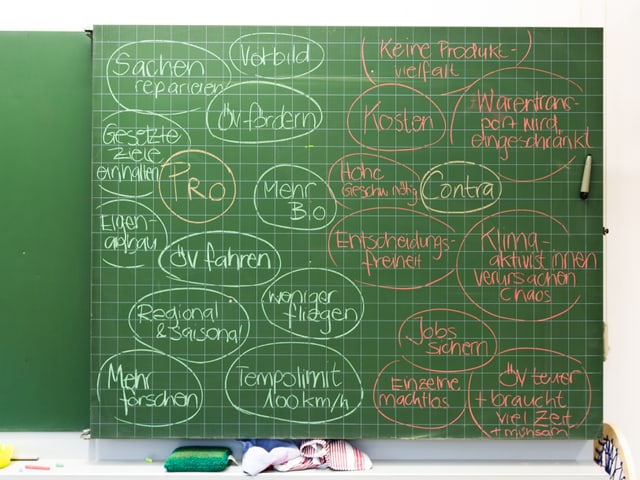 Sachen
reparieren
Vorbild
ÖV fördern
Gesetzte
Ziele
einhalten
PRO
Mehr
Bio
Eigen-
anbau
ÖV fahren
weniger
fliegen
Regional
& Saisonal
Mehr
forschen
Tempolimit
100 km/h
Keine Produkt-
vielfalt
Kosten
Warentrans-
port wird
eingeschränkt
Hohe
Geschw. nötig
Contra
Entscheidungs-
freiheit
Klima-
aktivist innen
verursachen
Chaos
Jobs
sichern
Einzelne
machtlos
ÖV teuer
+ braucht
viel Zeit
+ mühsam